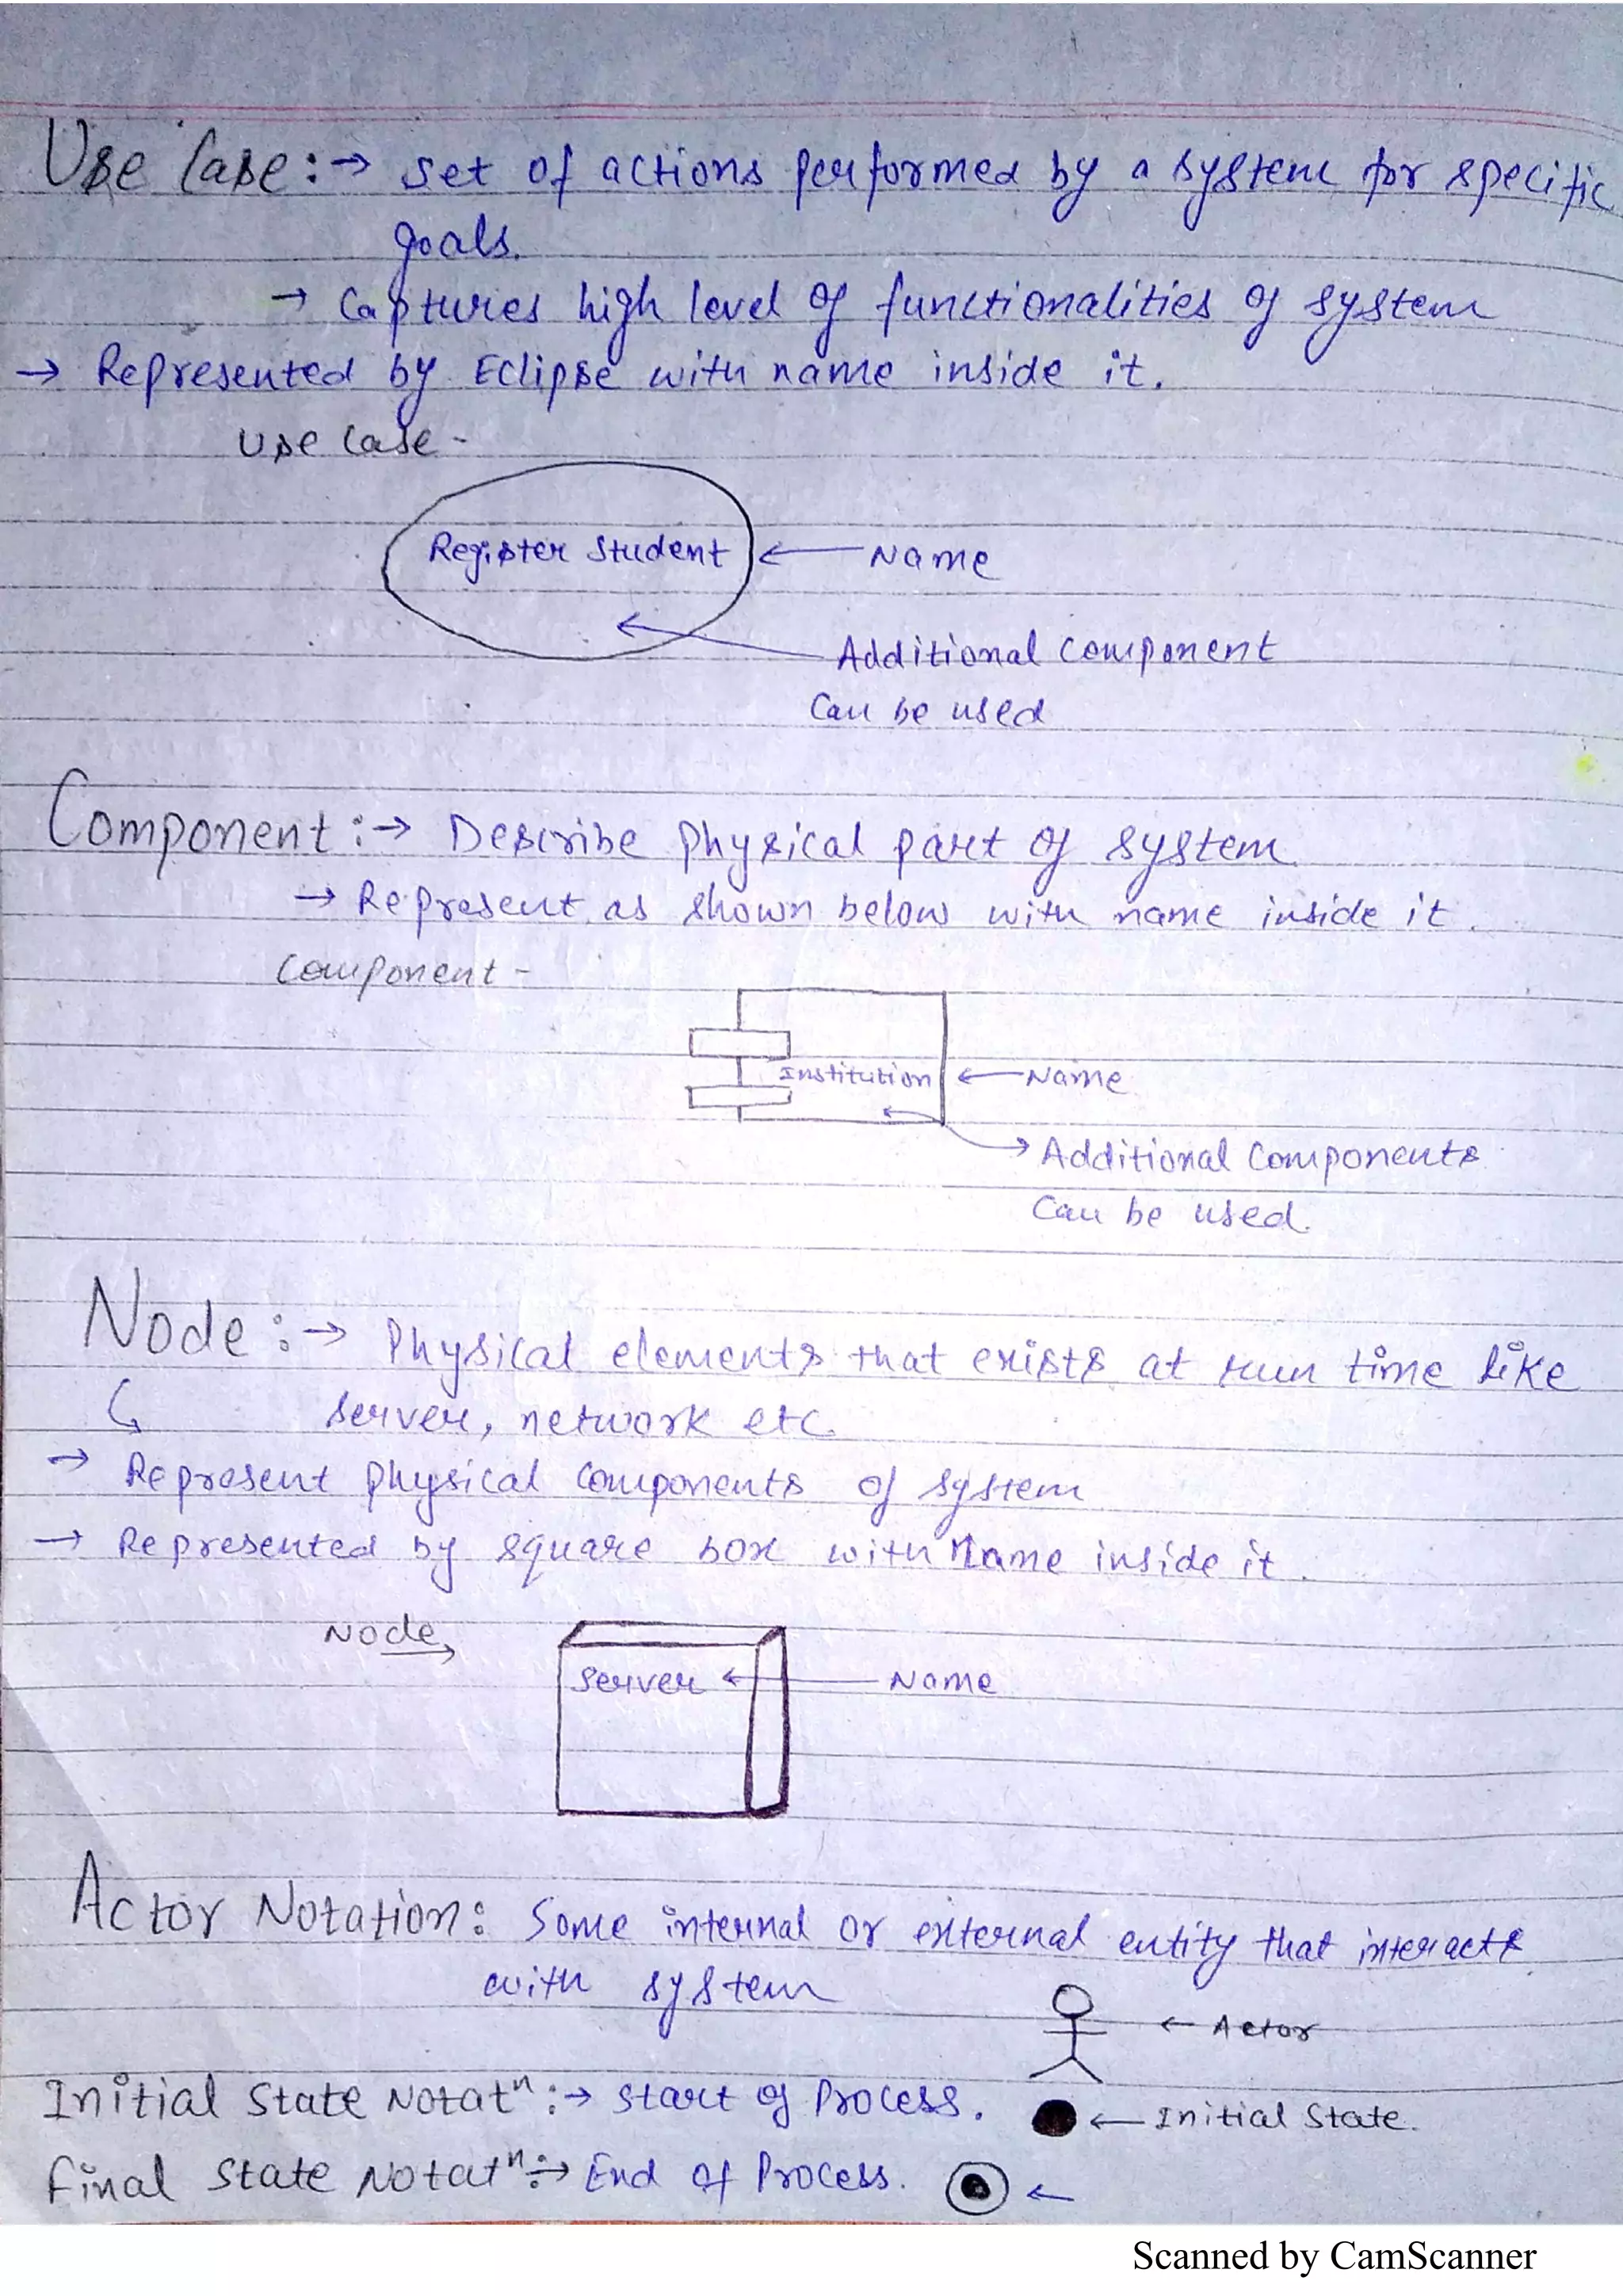 Use Case :→ Set of actions performed by a system for specific
goals.
→ Captures high level of functionalities of system
→ Represented by Eclipse with name inside it.
Use Case -
Register Student ← Name
Additional Component
Can be used
Component :→ Describe physical part of system
→ Represent as shown below with name inside it.
Component -
Institution ← Name
→ Additional Components
Can be used.
Node :→ Physical elements that exists at run time like
server, network etc.
→ Represent physical components of system
→ Represented by square box with Name inside it.
Node →
Server ← Name
Actor Notation : Some internal or external entity that interacts
with system
← Actor
Initial State Notatⁿ :→ Start of Process. ← Initial State.
Final State Notatⁿ :→ End of Process. ←
Scanned by CamScanner